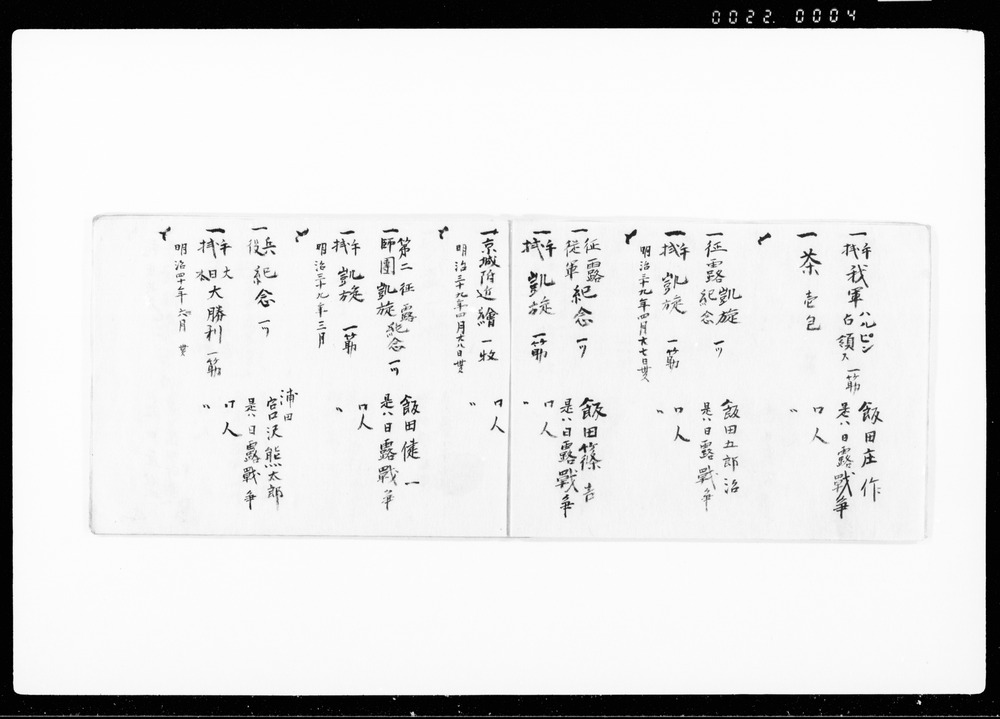 0022.0004
一手拭 我軍ハルピン占領ス 一筋 飯田庄作
是ハ日露戰争
一茶 壱包 〃 口人
一征露凱旋紀念 一ツ 飯田五郎治
是ハ日露戰争
一手拭 凱旋 一筋 〃 口人
明治三十九年四月廿七日貰
一征露従軍紀念 一ツ 飯田篠吉
是ハ日露戰争
一手拭 凱旋 一筋 〃 口人
一京城附近繪 一枚 〃 口人
明治三十九年四月廿八日貰
一第二師團征露凱旋紀念 一ツ 飯田健一
是ハ日露戰争
一手拭 凱旋 一筋 〃 口人
明治三十九年三月
一兵役紀念 一ツ 浦田
宮口沢熊太郎
是ハ日露戰争
一手拭 大日本大勝利 一筋 〃 口人
明治四十年六月 貰